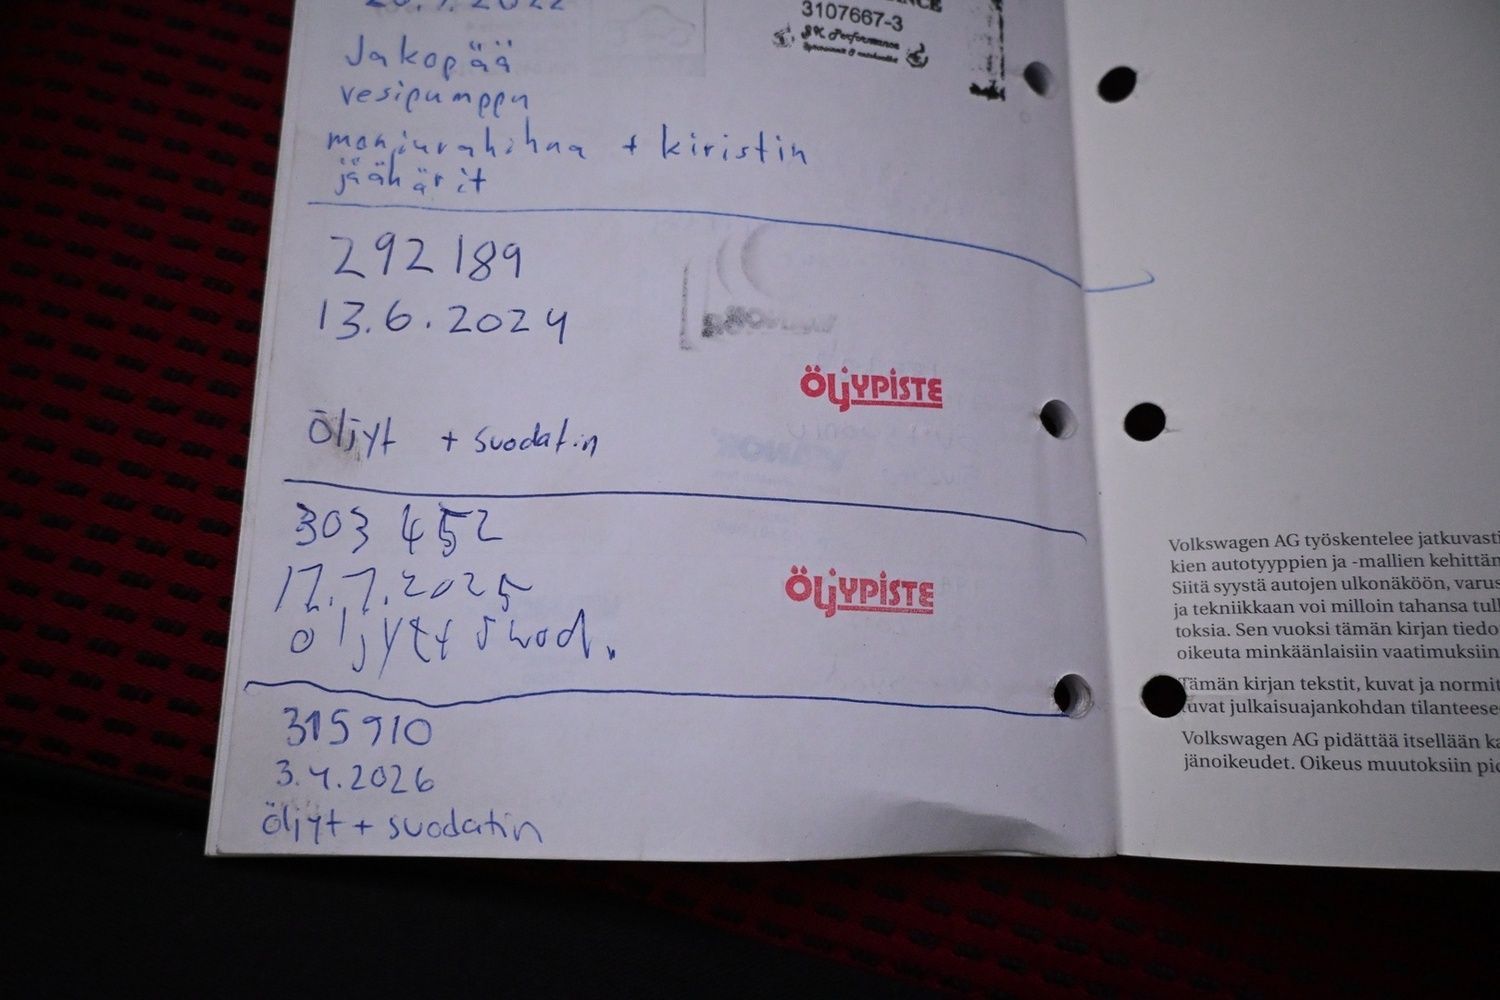 3107667-3
JK Performance
Jakopää
vesipumppu
moniurahihna + kiristin
jäähärit
292 189
13.6.2024
ÖLJYPISTE
Öljyt + suodatin
303 452
17.7.2025
ÖLJYPISTE
öljyt+ suod.
315 910
3.4.2026
öljyt + suodatin
Volkswagen AG työskentelee jatkuvasti
kien autotyyppien ja -mallien kehittäm
Siitä syystä autojen ulkonäköön, varus
ja tekniikkaan voi milloin tahansa tull
toksia. Sen vuoksi tämän kirjan tiedo
oikeuta minkäänlaisiin vaatimuksiin
Tämän kirjan tekstit, kuvat ja normit
kuvat julkaisuajankohdan tilanteese
Volkswagen AG pidättää itsellään ka
jänoikeudet. Oikeus muutoksiin pid